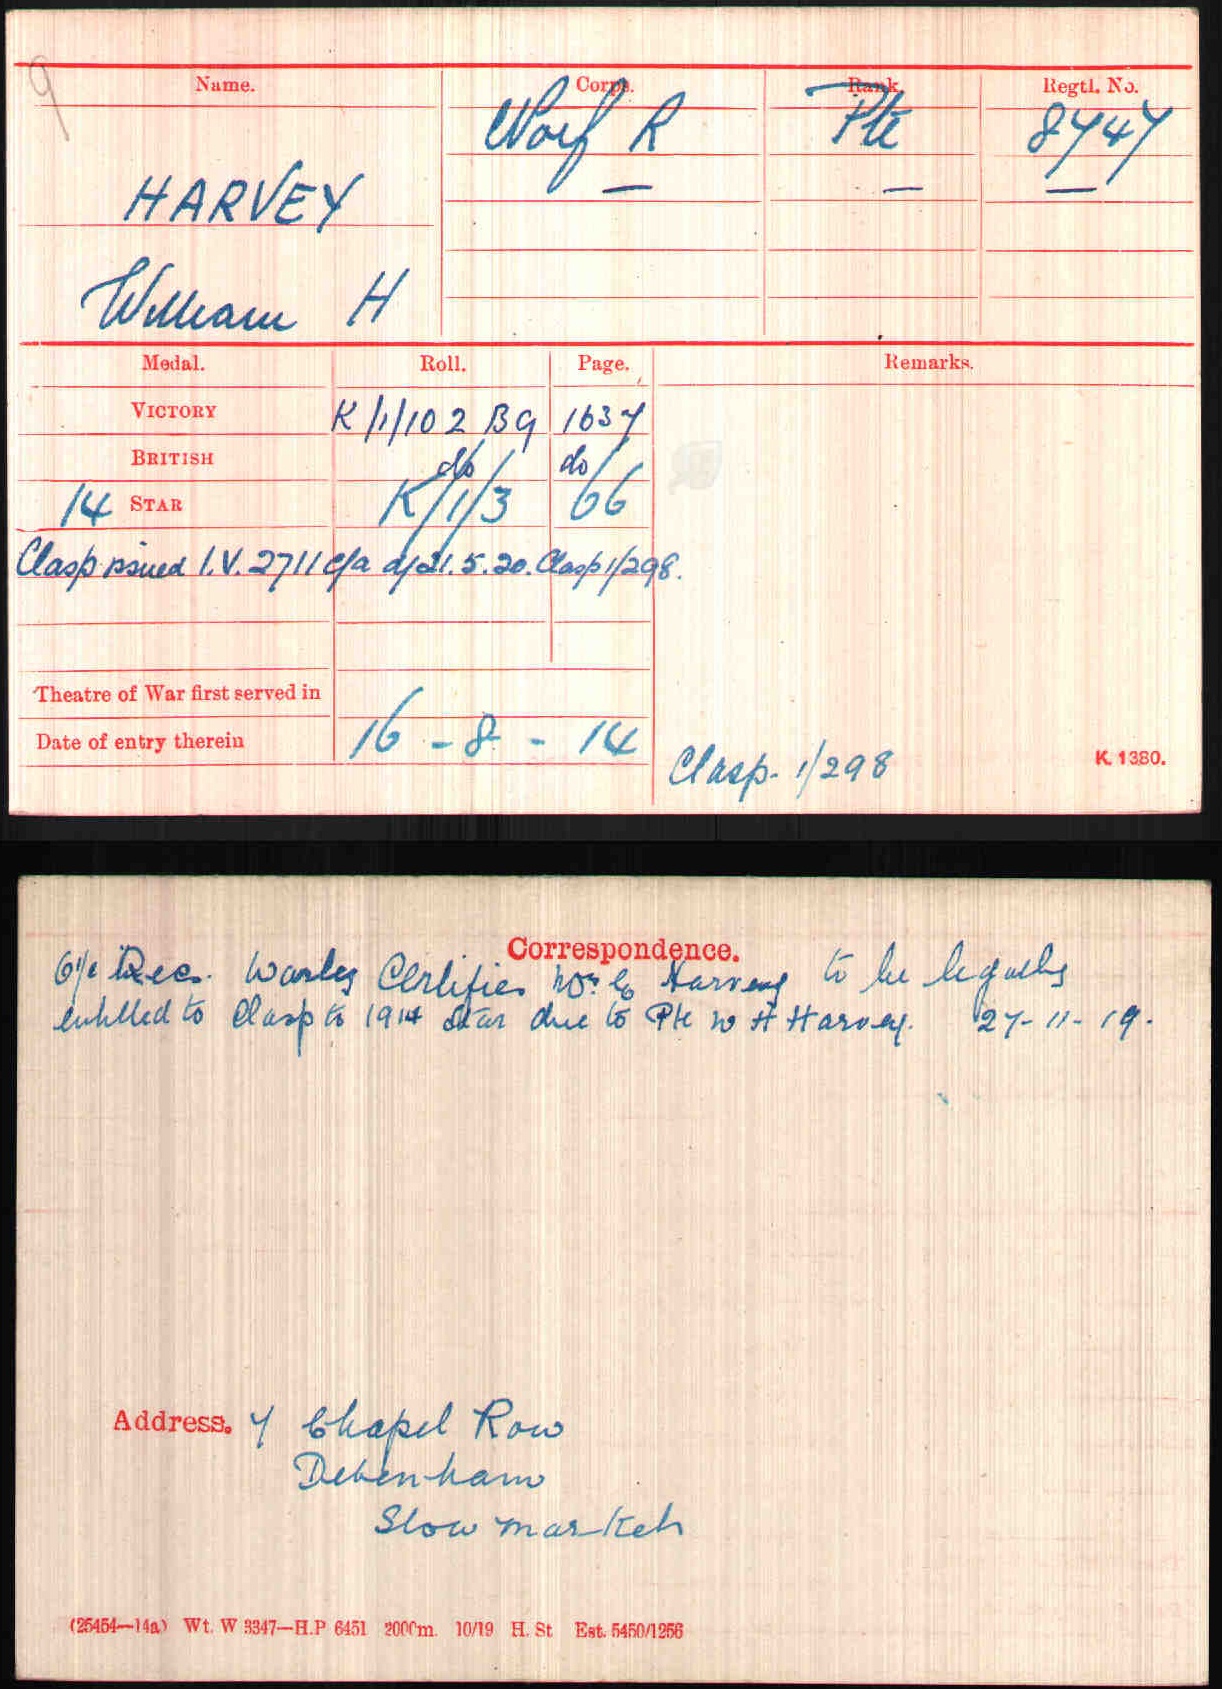 9
Name. Corps. Rank. Regtl. No.
Norf R Pte 8747
HARVEY — — —
William H
Medal. Roll. Page. Remarks.
VICTORY K/1/102 B9 1637
BRITISH do do
14 STAR K/1/3 66
Clasp issued I.V. 2711 c/a d/21.5.20. Clasp 1/298.
Theatre of War first served in
Date of entry therein 16 - 8 - 14
Clasp. 1/298
K. 1380.
Correspondence.
O i/c Rec. Warley Certifies Mrs E Harvey to be legally
entitled to Clasp to 1914 Star due to Pte W H Harvey. 27-11-19.
Address. 7 Chapel Row
Debenham
Stowmarket
(25454—14a) Wt. W 3347—H.P 6451 2000m. 10/19 H. St Est. 5450/1256